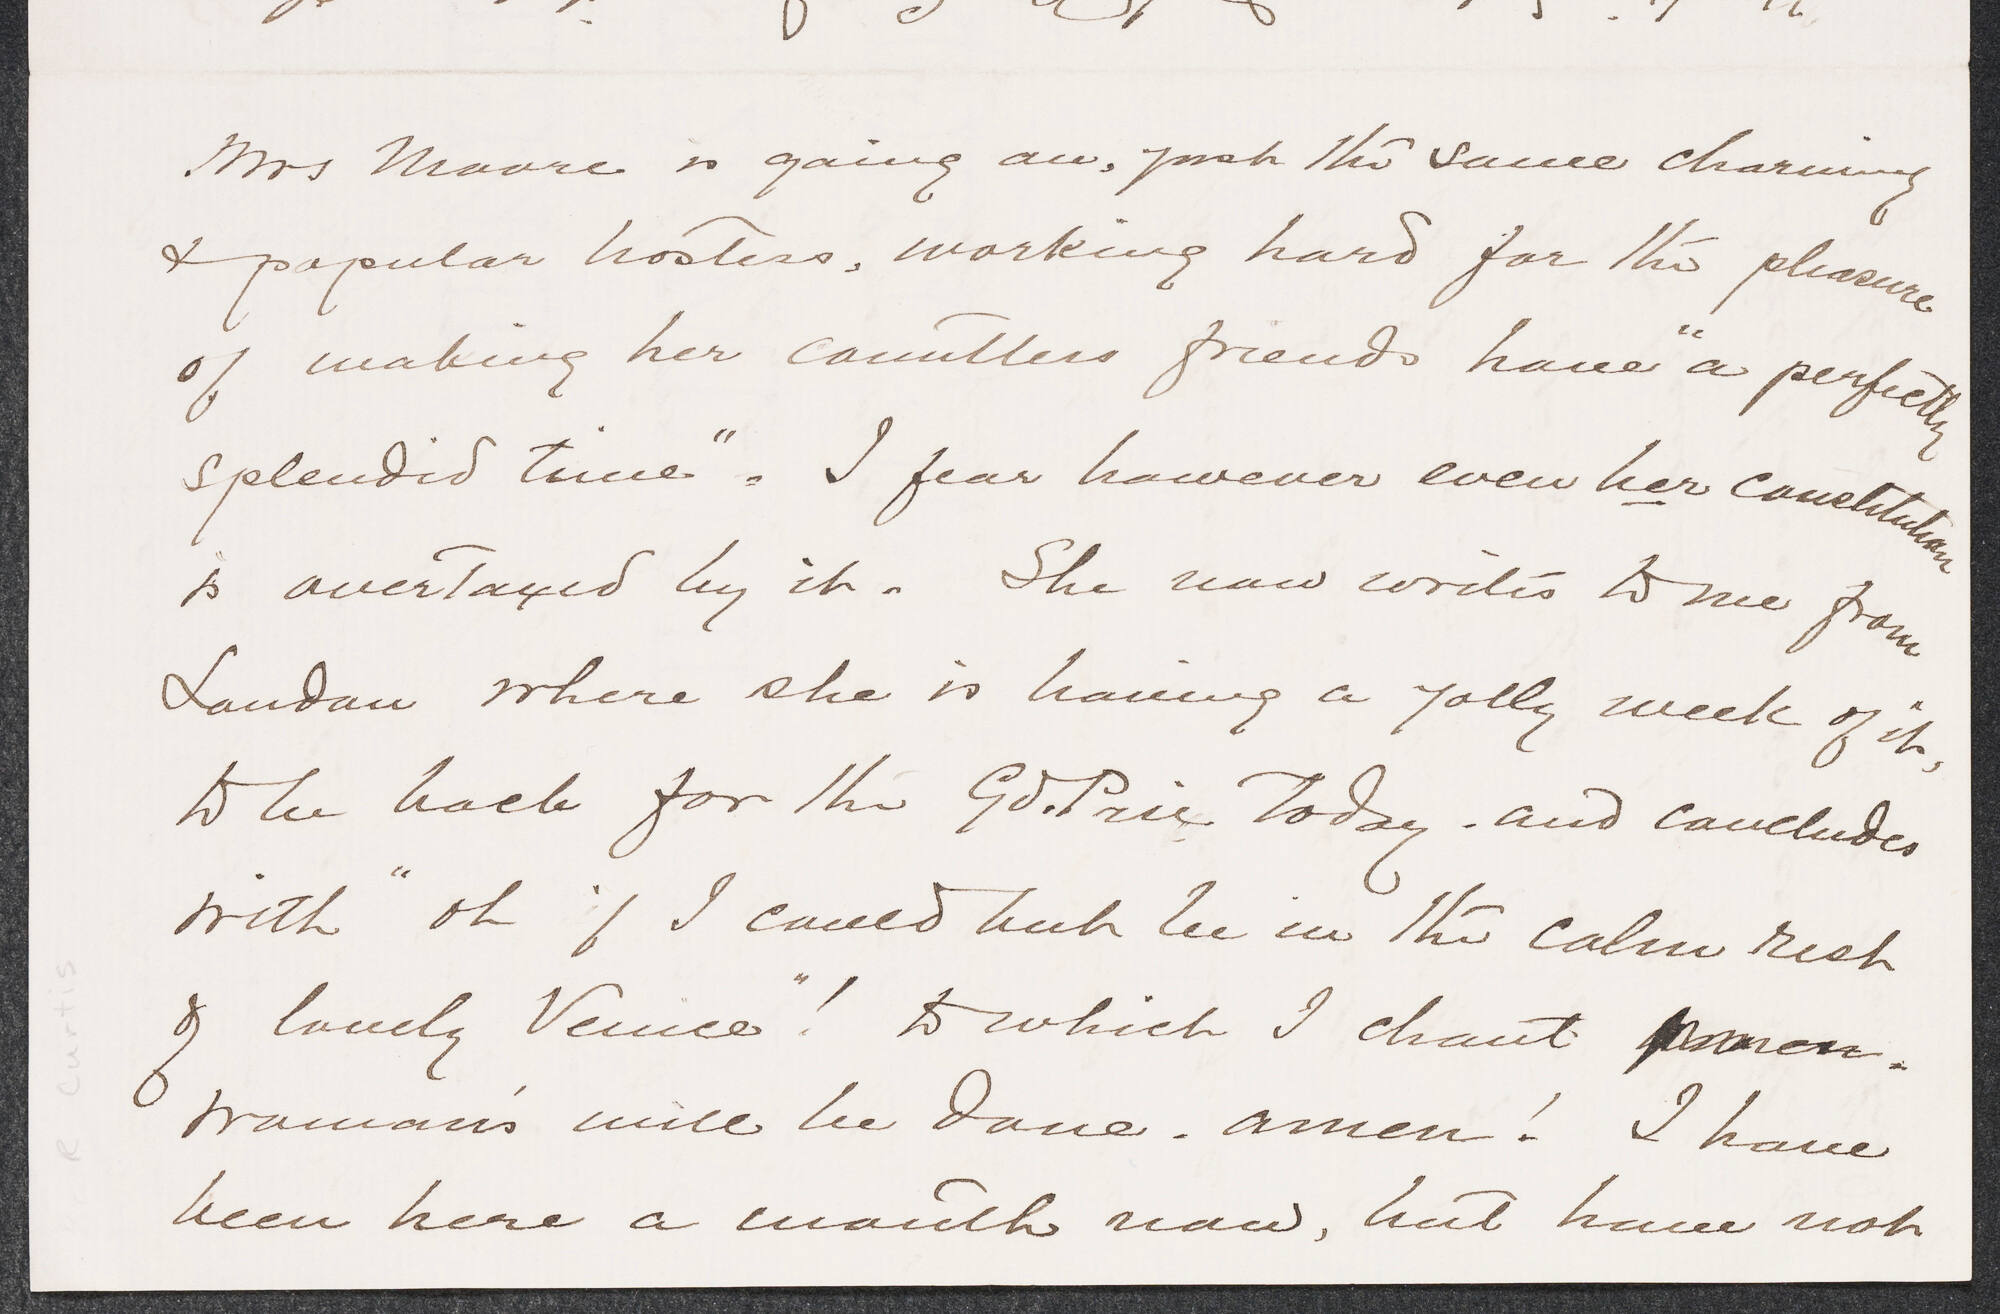 Mrs Moore is going on, just the same charming
& popular hostess, working hard for the pleasure
of making her countless friends have "a perfectly
splendid time". I fear however even her constitution
is overtaxed by it. She now writes to me from
London where she is having a jolly week of it,
to be back for the Gd. Prix Today. and concludes
with "oh if I could but be in the calm rest
of lovely Venice"! to which I chant
woman's will be done. amen! I have
been here a month now, but have not
R Curtis